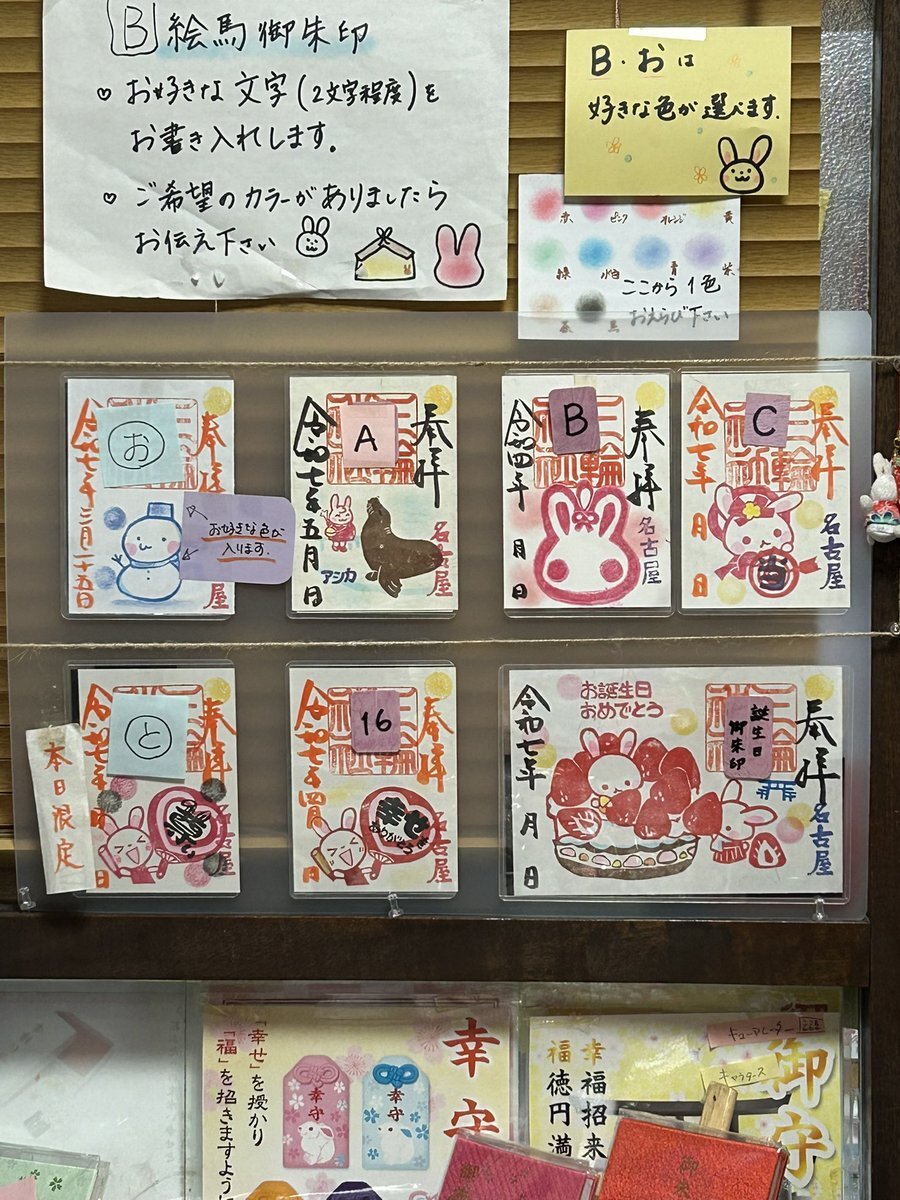 B 絵馬御朱印
♡ お好きな文字(2文字程度)を
お書き入れします。
♡ ご希望のカラーがありましたら
お伝え下さい
B・おは
好きな色が選べます.
赤 ピンク オレンジ 黄
緑 水色 青 紫
茶 黒
ここから1色
おえらび下さい
お
奉拝
令和七年三月二十五日
屋
お好きな色が
入ります.
A
奉拝
名古屋
令和七年五月 日
アシカ
B
奉拝
三輪
名古屋
令和四年 月 日
C
奉拝
三輪
名古屋
令和七年 月 日
本日限定
と
奉拝
名古屋
令和七年
16
奉拝
名古屋
令和七年四月 日
幸せ
ありがとう
お誕生日
おめでとう
誕生日
御朱印
奉拝
名古屋
令和七年 月 日
幸守
「幸せ」を授かり
「福」を招きますように
幸守
幸守
御守
幸福招来
福徳円満
キューアレーター
キャラクターズ